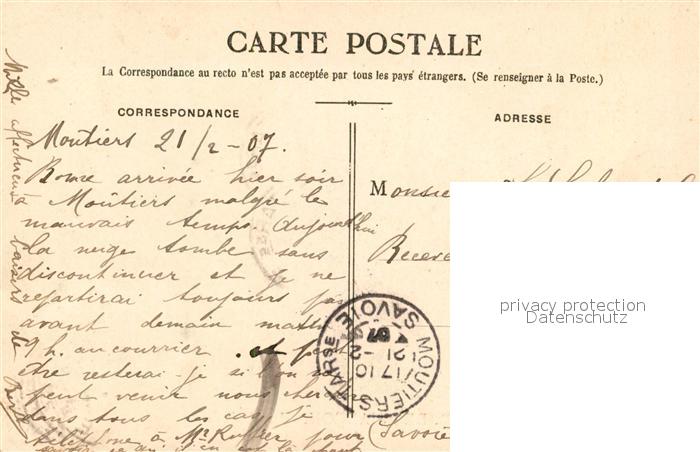 CARTE POSTALE
La Correspondance au recto n'est pas acceptée par tous les pays étrangers. (Se renseigner à la Poste.)
CORRESPONDANCE
Moutiers 21/2-07.
Bonne arrivée hier soir
à Moûtiers malgré le
mauvais temps. Aujourd'hui
la neige tombe sans
discontinuer et je ne
repartirai toujours pas
avant demain matin
9 h. au courrier. et peut
être resterai-je si l'on ne
peut venir nous chercher
dans tous les cas, je
téléphone à Mr pour
Mille affectueux baisers de
ADRESSE
Monsieur
Receve
(Savoie
MOUTIERS TARSE
SAVOIE
17 10
21 -2
07
privacy protection
Datenschutz